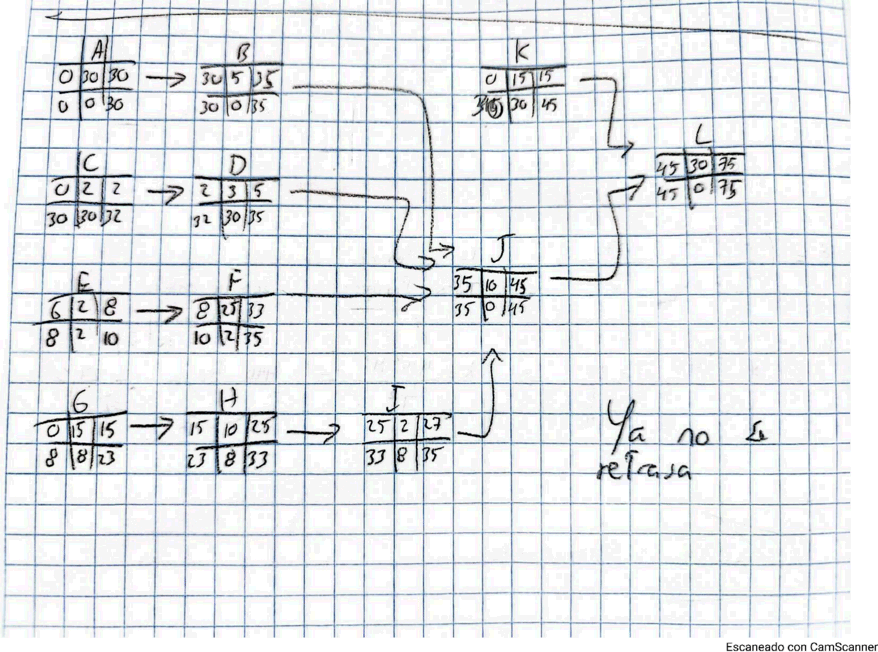 A B K
0 30 30 30 5 35 0 15 15
0 0 30 30 0 35 30 45
L
45 30 75
45 0 75
C D
0 2 2 2 3 5
30 30 32 32 30 35
J
35 10 45
35 0 45
E F
6 2 8 8 25 33
8 2 10 10 2 35
G H I
0 15 15 15 10 25 25 2 27
8 8 23 23 8 33 33 8 35
Ya no
retrasa
Escaneado con CamScanner